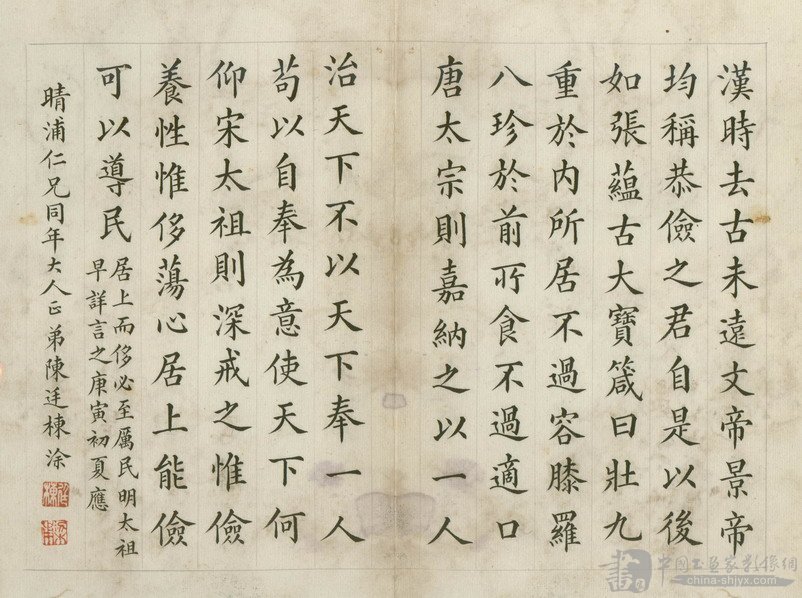 漢時去古未遠文帝景帝
均稱恭儉之君自是以後
如張蘊古大寶箴曰壯九
重於內所居不過容膝羅
八珍於前所食不過適口
唐太宗則嘉納之以一人
治天下不以天下奉一人
苟以自奉為意使天下何
仰宋太祖則深戒之惟儉
養性惟侈蕩心居上能儉
可以導民
居上而侈必至厲民明太祖
早詳言之庚寅初夏應
晴浦仁兄同年大人正弟陳廷棟涂
中國書畫家影像網
china-shjyx.com